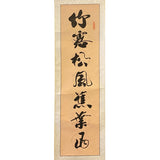 竹露松風蕉葉雨